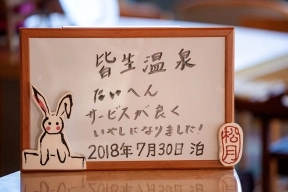 皆生温泉
たいへん
サービスが良く
いやしになりました!
2018年7月30日 泊
松月